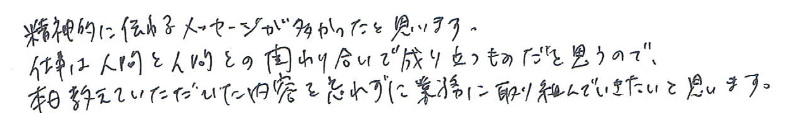 精神的に伝わるメッセージが多かったと思います。
仕事は人間と人間との関わり合いで成り立つものだと思うので、
本日教えていただいた内容を忘れずに業務に取り組んでいきたいと思います。